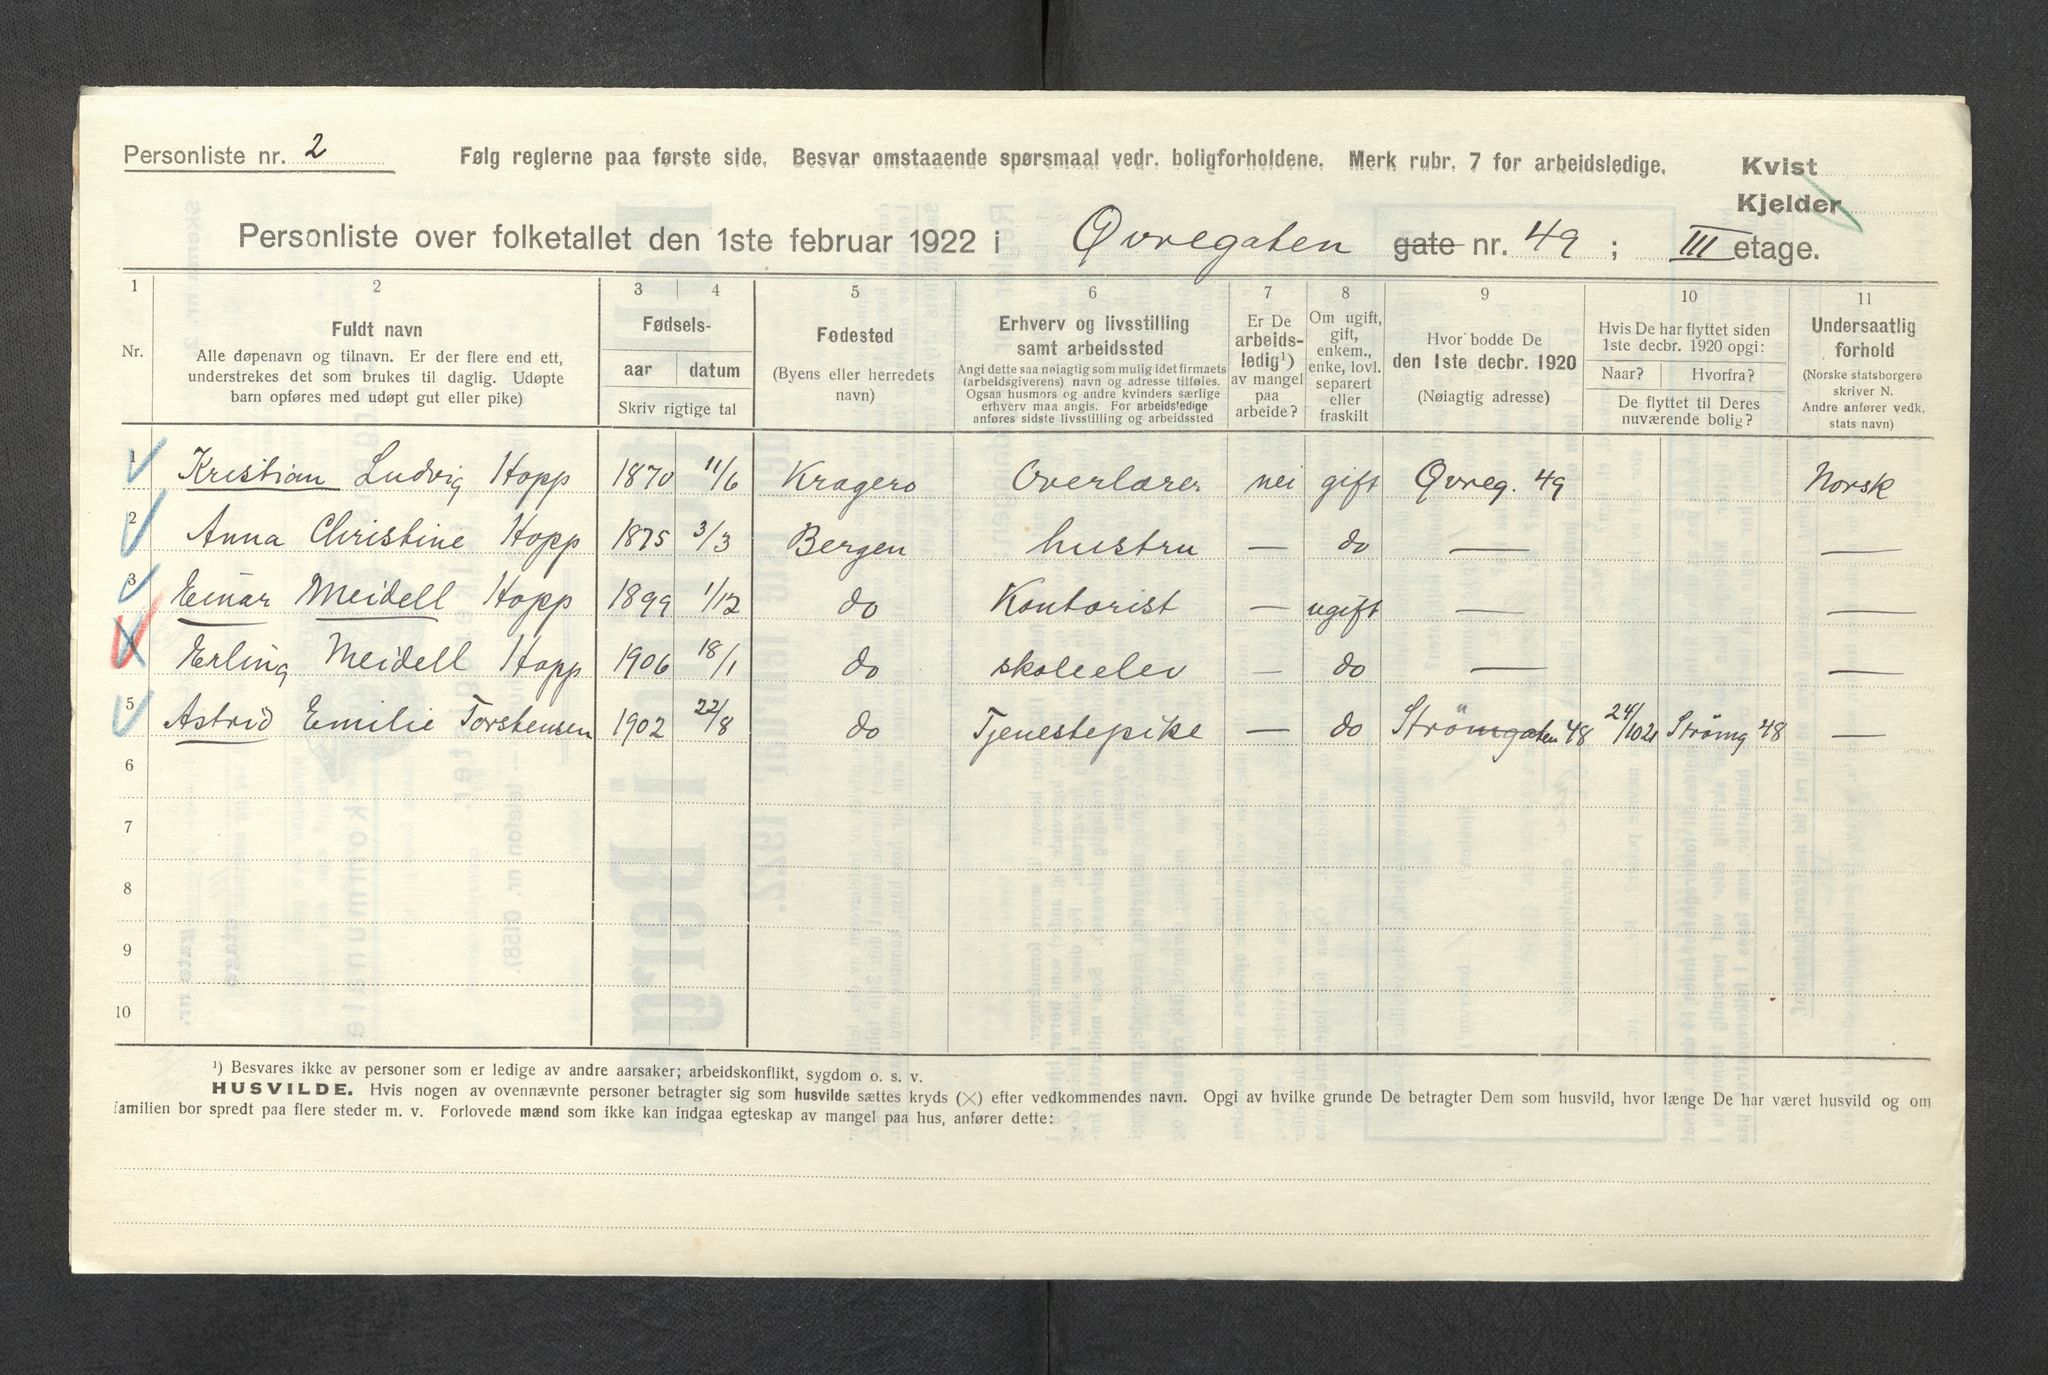 Personliste nr. 2 Følg reglerne paa første side. Besvar omstaaende spørsmaal vedr. boligforholdene. Merk rubr. 7 for arbeidsledige. Kvist
Kjelder
Personliste over folketallet den 1ste februar 1922 i Øvregaten gate nr. 49 ; III etage.
1 2 3 4 5 6 7 8 9 10 11
Nr.
Fuldt navn
Alle døpenavn og tilnavn. Er der flere end ett,
understrekes det som brukes til daglig. Udøpte
barn opføres med udøpt gut eller pike)
Fødsels-
aar datum
Skriv rigtige tal
Fødested
(Byens eller herredets
navn)
Erhverv og livsstilling
samt arbeidssted
Angi dette saa nøiaglig som mulig idet firmaets
(arbeidsgiverens) navn og adresse tilføies.
Ogsaa husmors og andre kvinders særlige
erhverv maa angis. For arbeidsledige
anføres sidste livsstilling og arbeidssted
Er De
arbeids-
ledig¹)
av mangel
paa
arbeide?
Om ugift,
gift,
enkem.,
enke, lovl.
separert
eller
fraskilt
Hvor bodde De
den 1ste decbr. 1920
(Nøiagtig adresse)
Hvis De har flyttet siden
1ste decbr. 1920 opgi:
Naar? Hvorfra?
De flyttet til Deres
nuværende bolig?
Undersaatlig
forhold
(Norske statsborgere
skriver N.
Andre anfører vedk.
stats navn)
1 Kristian Ludvig Hopp 1870 11/6 Kragerø Overlærer nei gift Øvreg. 49 Norsk
2 Anna Christine Hopp 1875 3/3 Bergen hustru — do — —
3 Einar Meidell Hopp 1899 1/12 do Kontorist — ugift — —
4 Erling Meidell Hopp 1906 18/1 do skoleelev — do — —
5 Astrid Emilie Torstensen 1902 22/8 do Tjenestepike — do Strömgaten 48 24/10 21 Strömg 48 —
6
7
8
9
10
¹) Besvares ikke av personer som er ledige av andre aarsaker; arbeidskonflikt, sygdom o. s. v.
HUSVILDE. Hvis nogen av ovennævnte personer betragter sig som husvilde sættes kryds (×) efter vedkommendes navn. Opgi av hvilke grunde De betragter Dem som husvild, hvor længe De har været husvild og om
familien bor spredt paa flere steder m. v. Forlovede mænd som ikke kan indgaa egteskap av mangel paa hus, anfører dette: